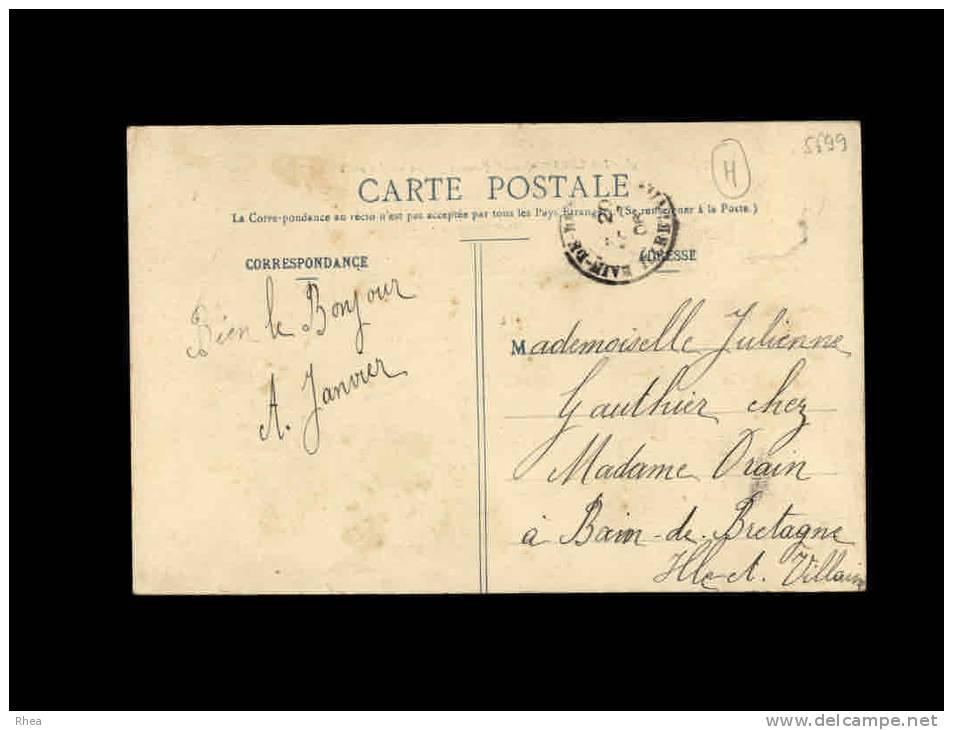 5699
H
CARTE POSTALE
La Correspondance au recto n'est pas acceptée par tous les Pays Etrangers (Se renseigner à la Poste.)
CORRESPONDANCE
ADRESSE
Bien le Bonjour
A. Janvier
Mademoiselle Julienne
Gauthier chez
Madame Orain
à Bain-de-Bretagne
Ille et. Villaine
BAIN-DE-BRETAGNE
20
Rhea
www.delcampe.net